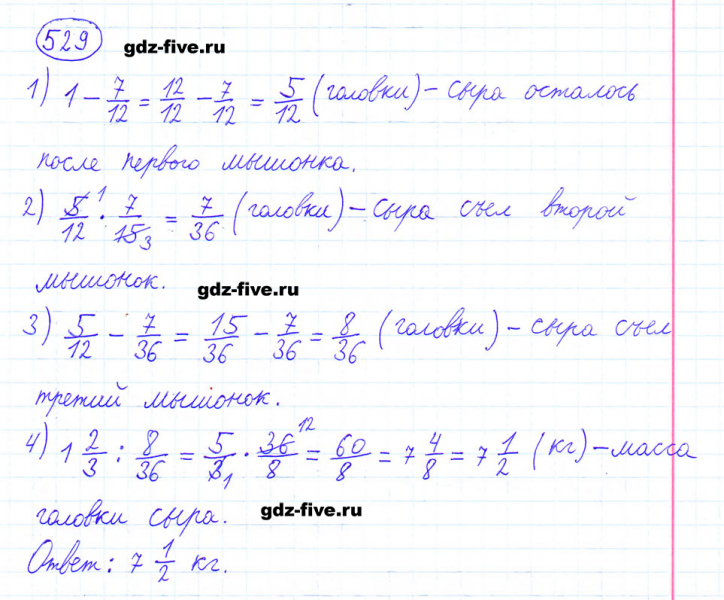 529 gdz-five.ru
1) 1 - 7/12 = 12/12 - 7/12 = 5/12 (головки) - сыра осталось
после первого мышонка.
2) 5/12 · 7/15 = 7/36 (головки) - сыра съел второй
1
3
мышонок. gdz-five.ru
3) 5/12 - 7/36 = 15/36 - 7/36 = 8/36 (головки) - сыра съел
третий мышонок.
4) 1 2/3 : 8/36 = 5/3 · 36/8 = 60/8 = 7 4/8 = 7 1/2 (кг) - масса
12
1
головки сыра. gdz-five.ru
Ответ: 7 1/2 кг.